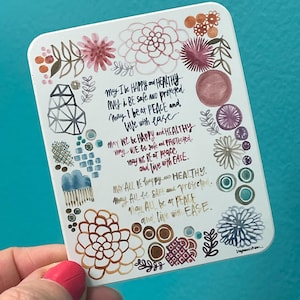 May I be HAPPY and HEALTHY.
May I be safe and protected.
May I be at PEACE and
live with ease.
MAY WE be HAPPY and HEALTHY.
MAY WE Be SAFE and PROTECTED.
MAY WE BE at PEACE,
and live with EASE.
MAY ALL be happy and HEALTHY.
MAY ALL be SAFE and protected.
May ALL be at PEACE
and live with EASE.